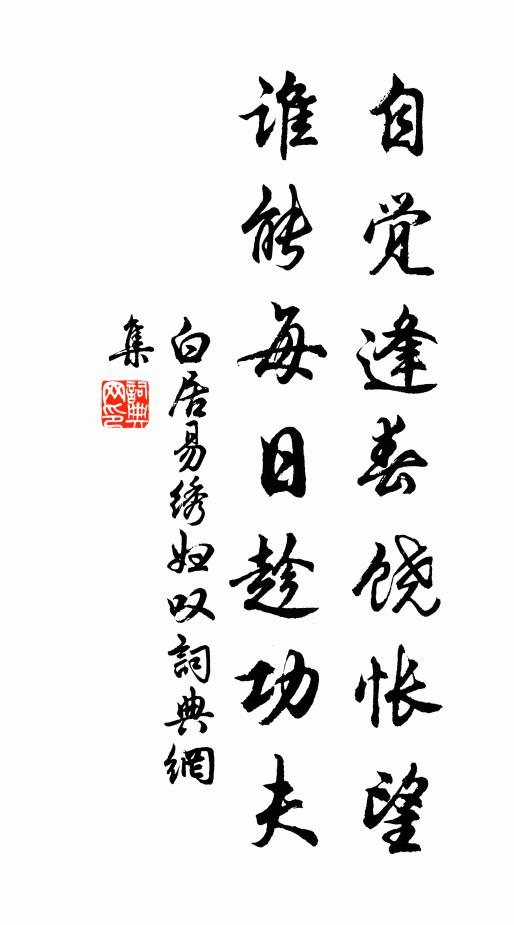 自觉逢春饶怅望
谁能每日趁功夫
白居易绣妇叹詞典網
集
詞典
网印